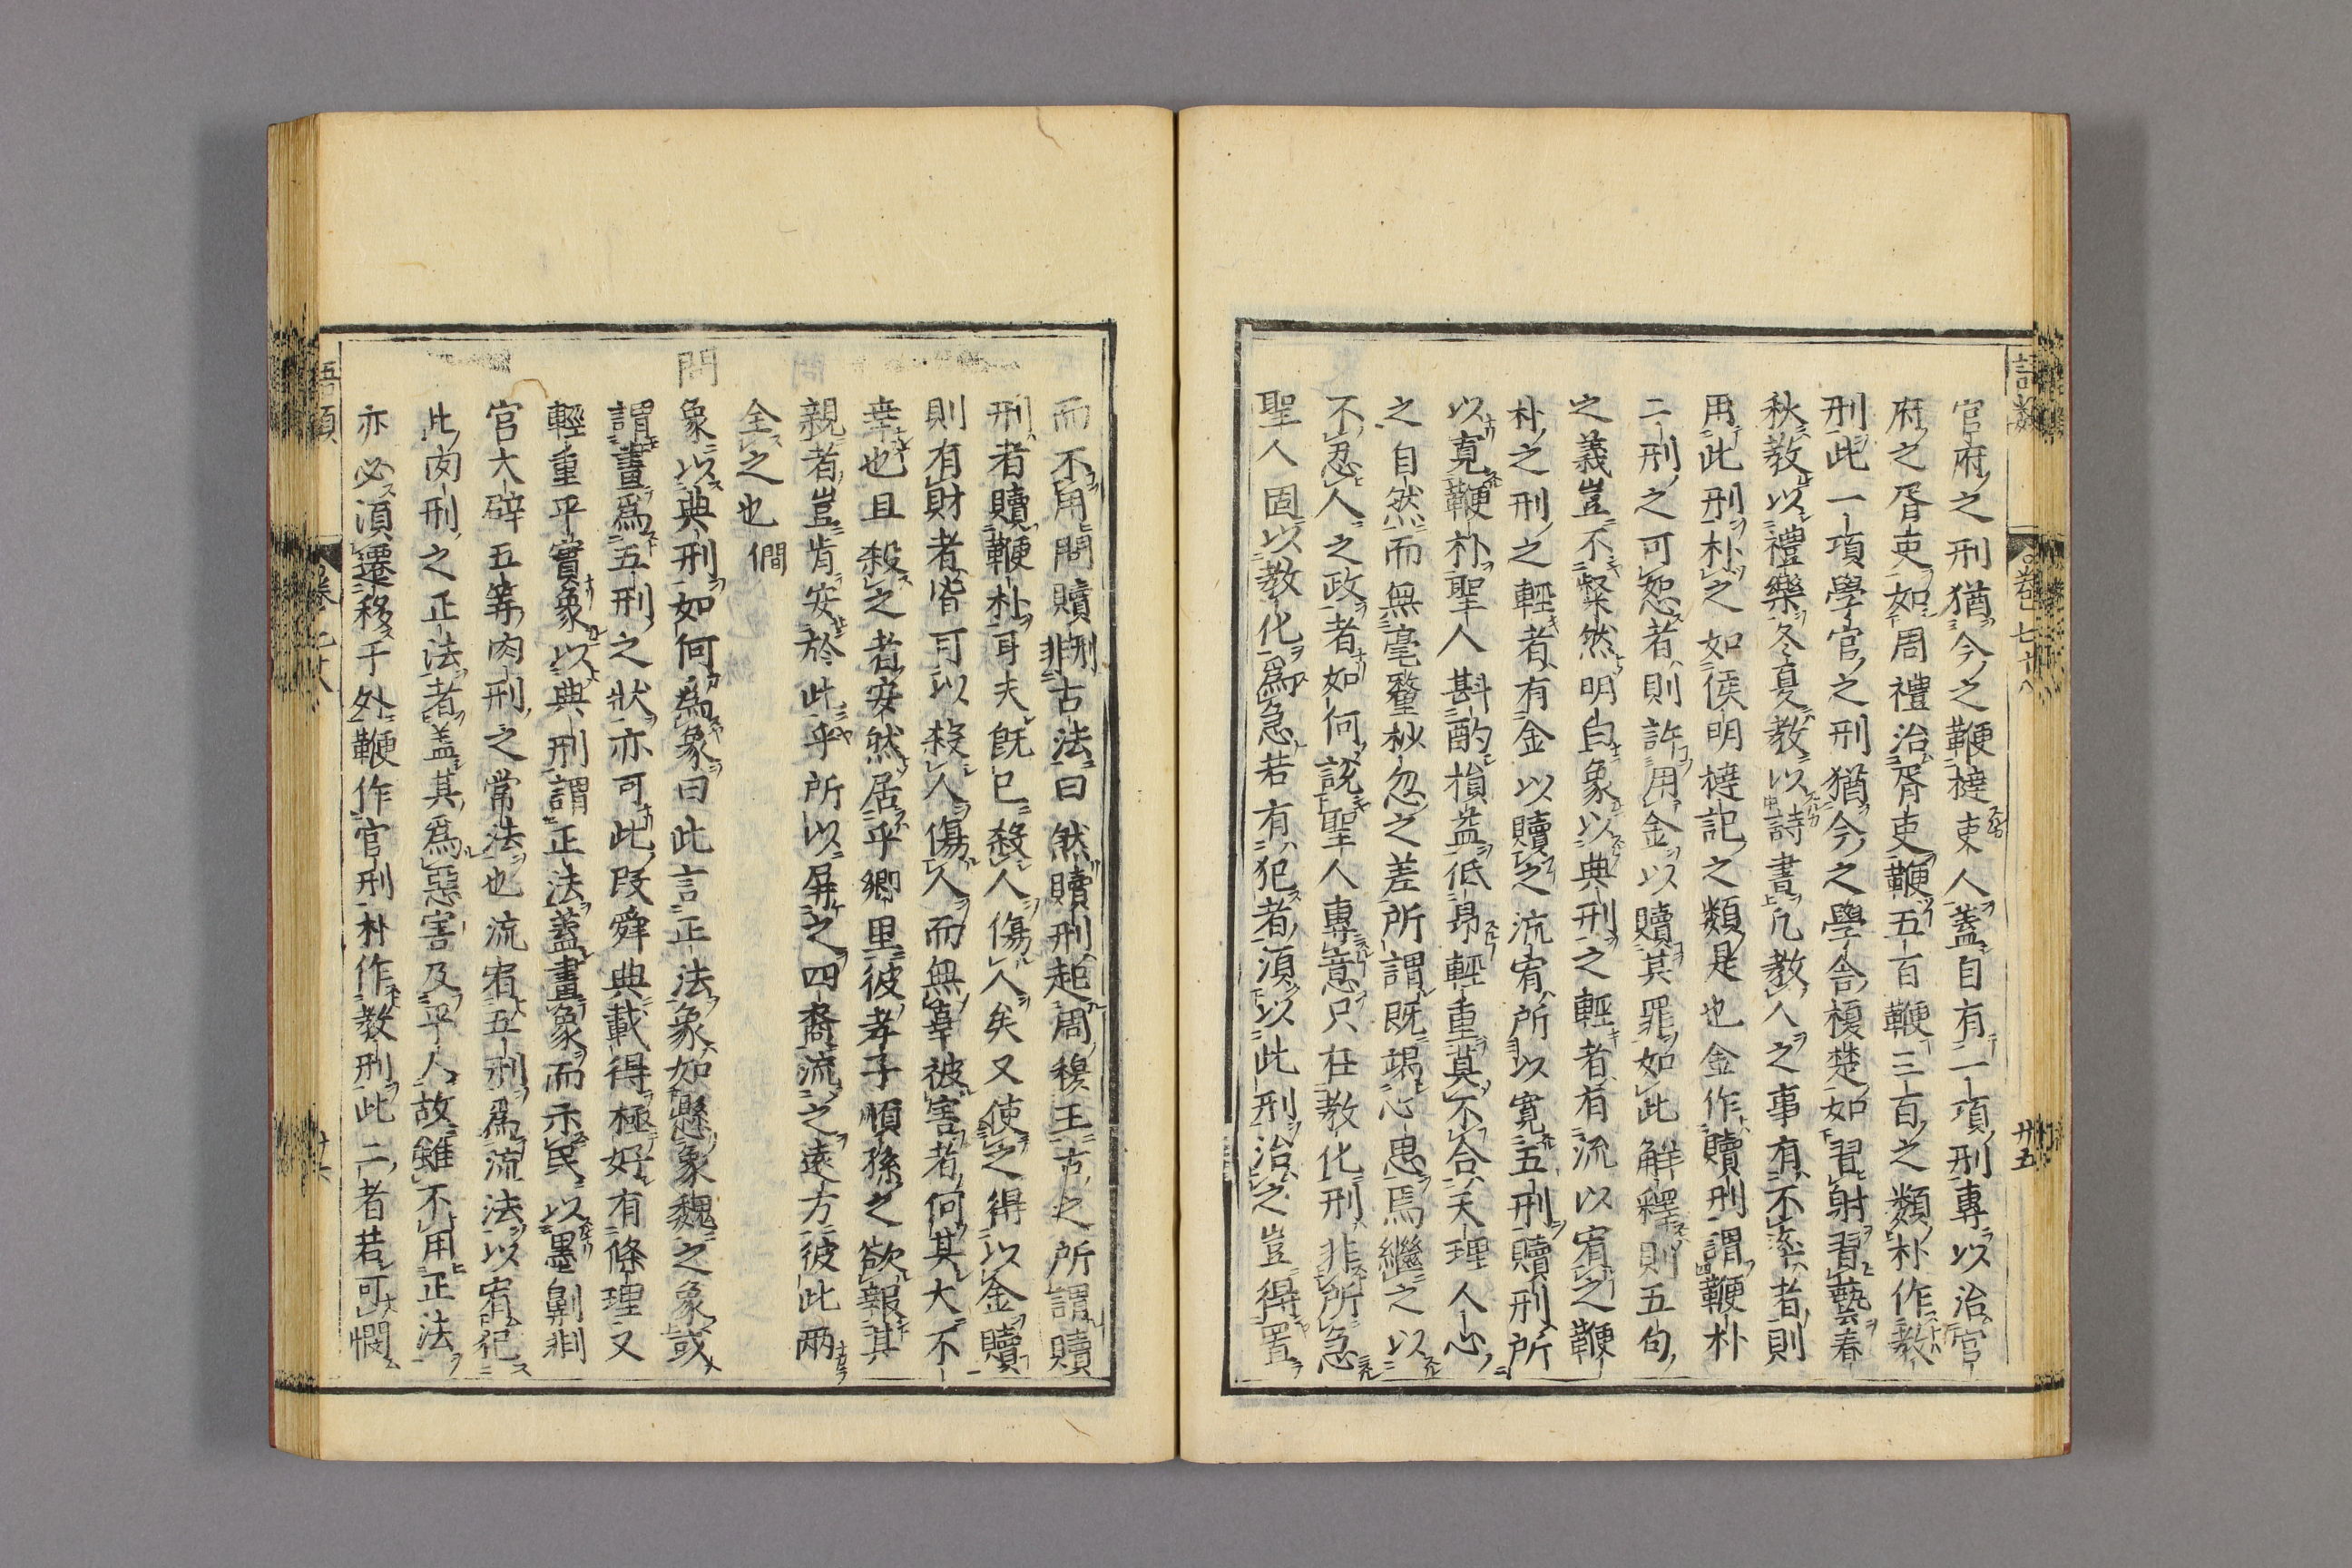 官府之刑猶今之鞭撻吏人蓋自有一項刑專以治官
府之胥吏如周禮治胥吏鞭五百鞭三百之類朴作教
刑此一項學官之刑猶今之學舍榎楚如習射習藝春
秋教以禮樂冬夏教以詩書凡教人之事有不率者則
用此刑朴之如侯明撻記之類是也金作贖刑謂鞭朴
二刑之可恕者則許用金以贖其罪如此解釋則五句
之義豈不粲然明白象以典刑之輕者有流以宥之鞭
朴之刑之輕者有金以贖之流宥所以寬五刑贖刑所
以寬鞭朴聖人斟酌損益低昂輕重莫不合天理人心
之自然而無毫釐秒忽之差所謂既竭心思焉繼之以
不忍人之政者如何說聖人專意只在教化刑非所急
聖人固以教化爲急若有犯者須以此刑治之豈得置
語類
卷七十八
廿五
而不用問贖刑非古法曰然贖刑起周穆王古之所謂贖
刑者贖鞭朴耳夫既已殺人傷人矣又使之得以金贖
則有財者皆可以殺人傷人而無辜被害者何其大不
幸也且殺之者安然居乎鄉里彼孝子順孫之欲報其
親者豈肯安於此乎所以屏之四裔流之遠方彼此兩
全之也僩
問象以典刑如何爲象曰此言正法象如懸象魏之象或
謂畫爲五刑之狀亦可此段舜典載得極好有條理又
輕重平實象以典刑謂正法蓋畫象而示民以墨劓剕
宮大辟五等肉刑之常法也流宥五刑爲流法以宥犯
此肉刑之正法者蓋其爲惡害及乎人故雖不用正法
亦必須遷移于外鞭作官刑朴作教刑此二者若可憫
語類
卷七十八
廿六